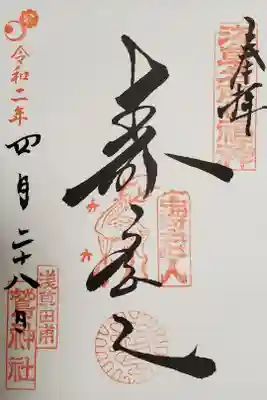 奉拝
寿老人
壽老人
令和二年
四月二十八日
浅草田甫
鷲神社